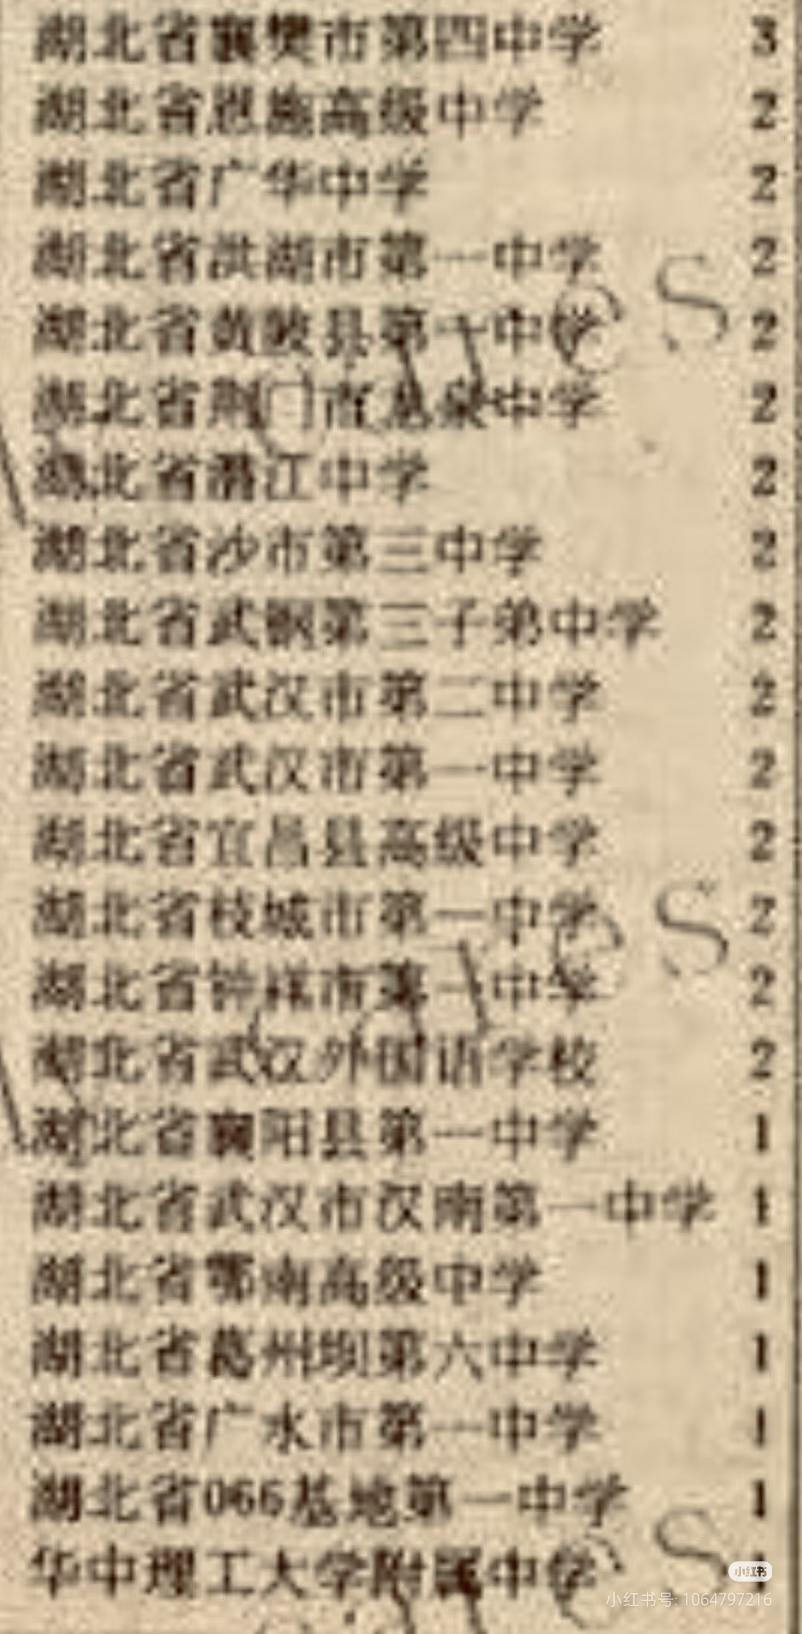 湖北省襄樊市第四中学 3
湖北省恩施高级中学 2
湖北省广华中学 2
湖北省洪湖市第一中学 2
湖北省黄陂县第一中学 2
湖北省荆门市龙泉中学 2
湖北省潜江中学 2
湖北省沙市第三中学 2
湖北省武钢第三子弟中学 2
湖北省武汉市第二中学 2
湖北省武汉市第一中学 2
湖北省宜昌县高级中学 2
湖北省枝城市第一中学 2
湖北省钟祥市第一中学 2
湖北省武汉外国语学校 2
湖北省襄阳县第一中学 1
湖北省武汉市汉南第一中学 1
湖北省鄂南高级中学 1
湖北省葛州坝第六中学 1
湖北省广水市第一中学 1
湖北省066基地第一中学 1
华中理工大学附属中学
小红书
小红书号: 1064797216